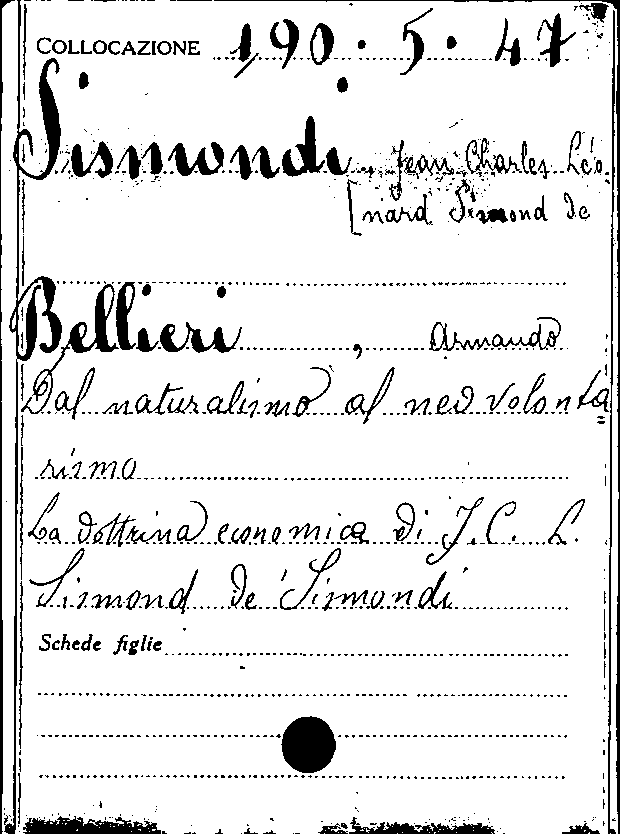 COLLOCAZIONE 190.5.47
Sismondi, Jean Charles Léo-
[nard Simond de
Bellieri, Armando
Dal naturalismo al neo volonta
rismo
La dottrina economica di J. C. L.
Sismond de' Sismondi
Schede figlie